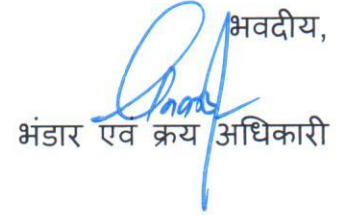 भवदीय,
भंडार एवं क्रय अधिकारी